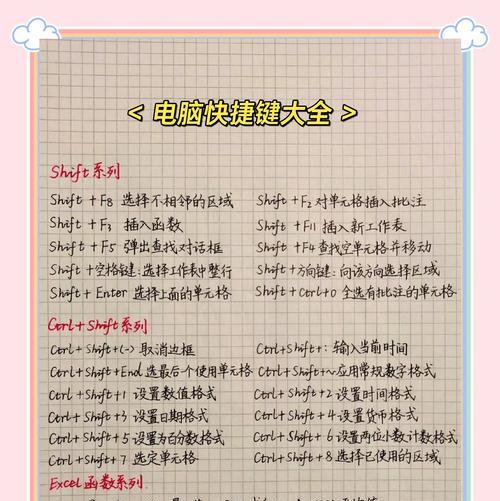 < 电脑快捷键大全 >
Shift系列
Shift + F8 选择不相邻的区域 Shift + F2 对单元格插入批注
Shift + F3 插入函数 Shift + F11 插入新工作表
Shift + F5 弹出查找对话框 Shift + F4 查找空单元格并移动
Shift + 空格键: 选择工作表中整行 Shift + 方向键: 向该方向选择区域
Shift + Enter 选择上面的单元格 Shift + Ctrl + O 全选有批注的单元格
Ctrl + Shift系列
Ctrl + Shift + (-) 取消边框 Ctrl + Shift + : 输入当前时间
Ctrl + Shift + End 选最后个使用单元格 Ctrl + Shift + ~ 应用常规数字格式
Ctrl + Shift + 1 设置数值格式 Ctrl + Shift + 2 设置时间格式
Ctrl + Shift + 3 设置日期格式 Ctrl + Shift + 4 设置货币格式
Ctrl + Shift + 5 设置为百分数格式 Ctrl + Shift + 6 设置两位小数计数格式
Ctrl + Shift + 7 选定单元格 Ctrl + Shift + 8 选择已使用的区域
Excel函数系列